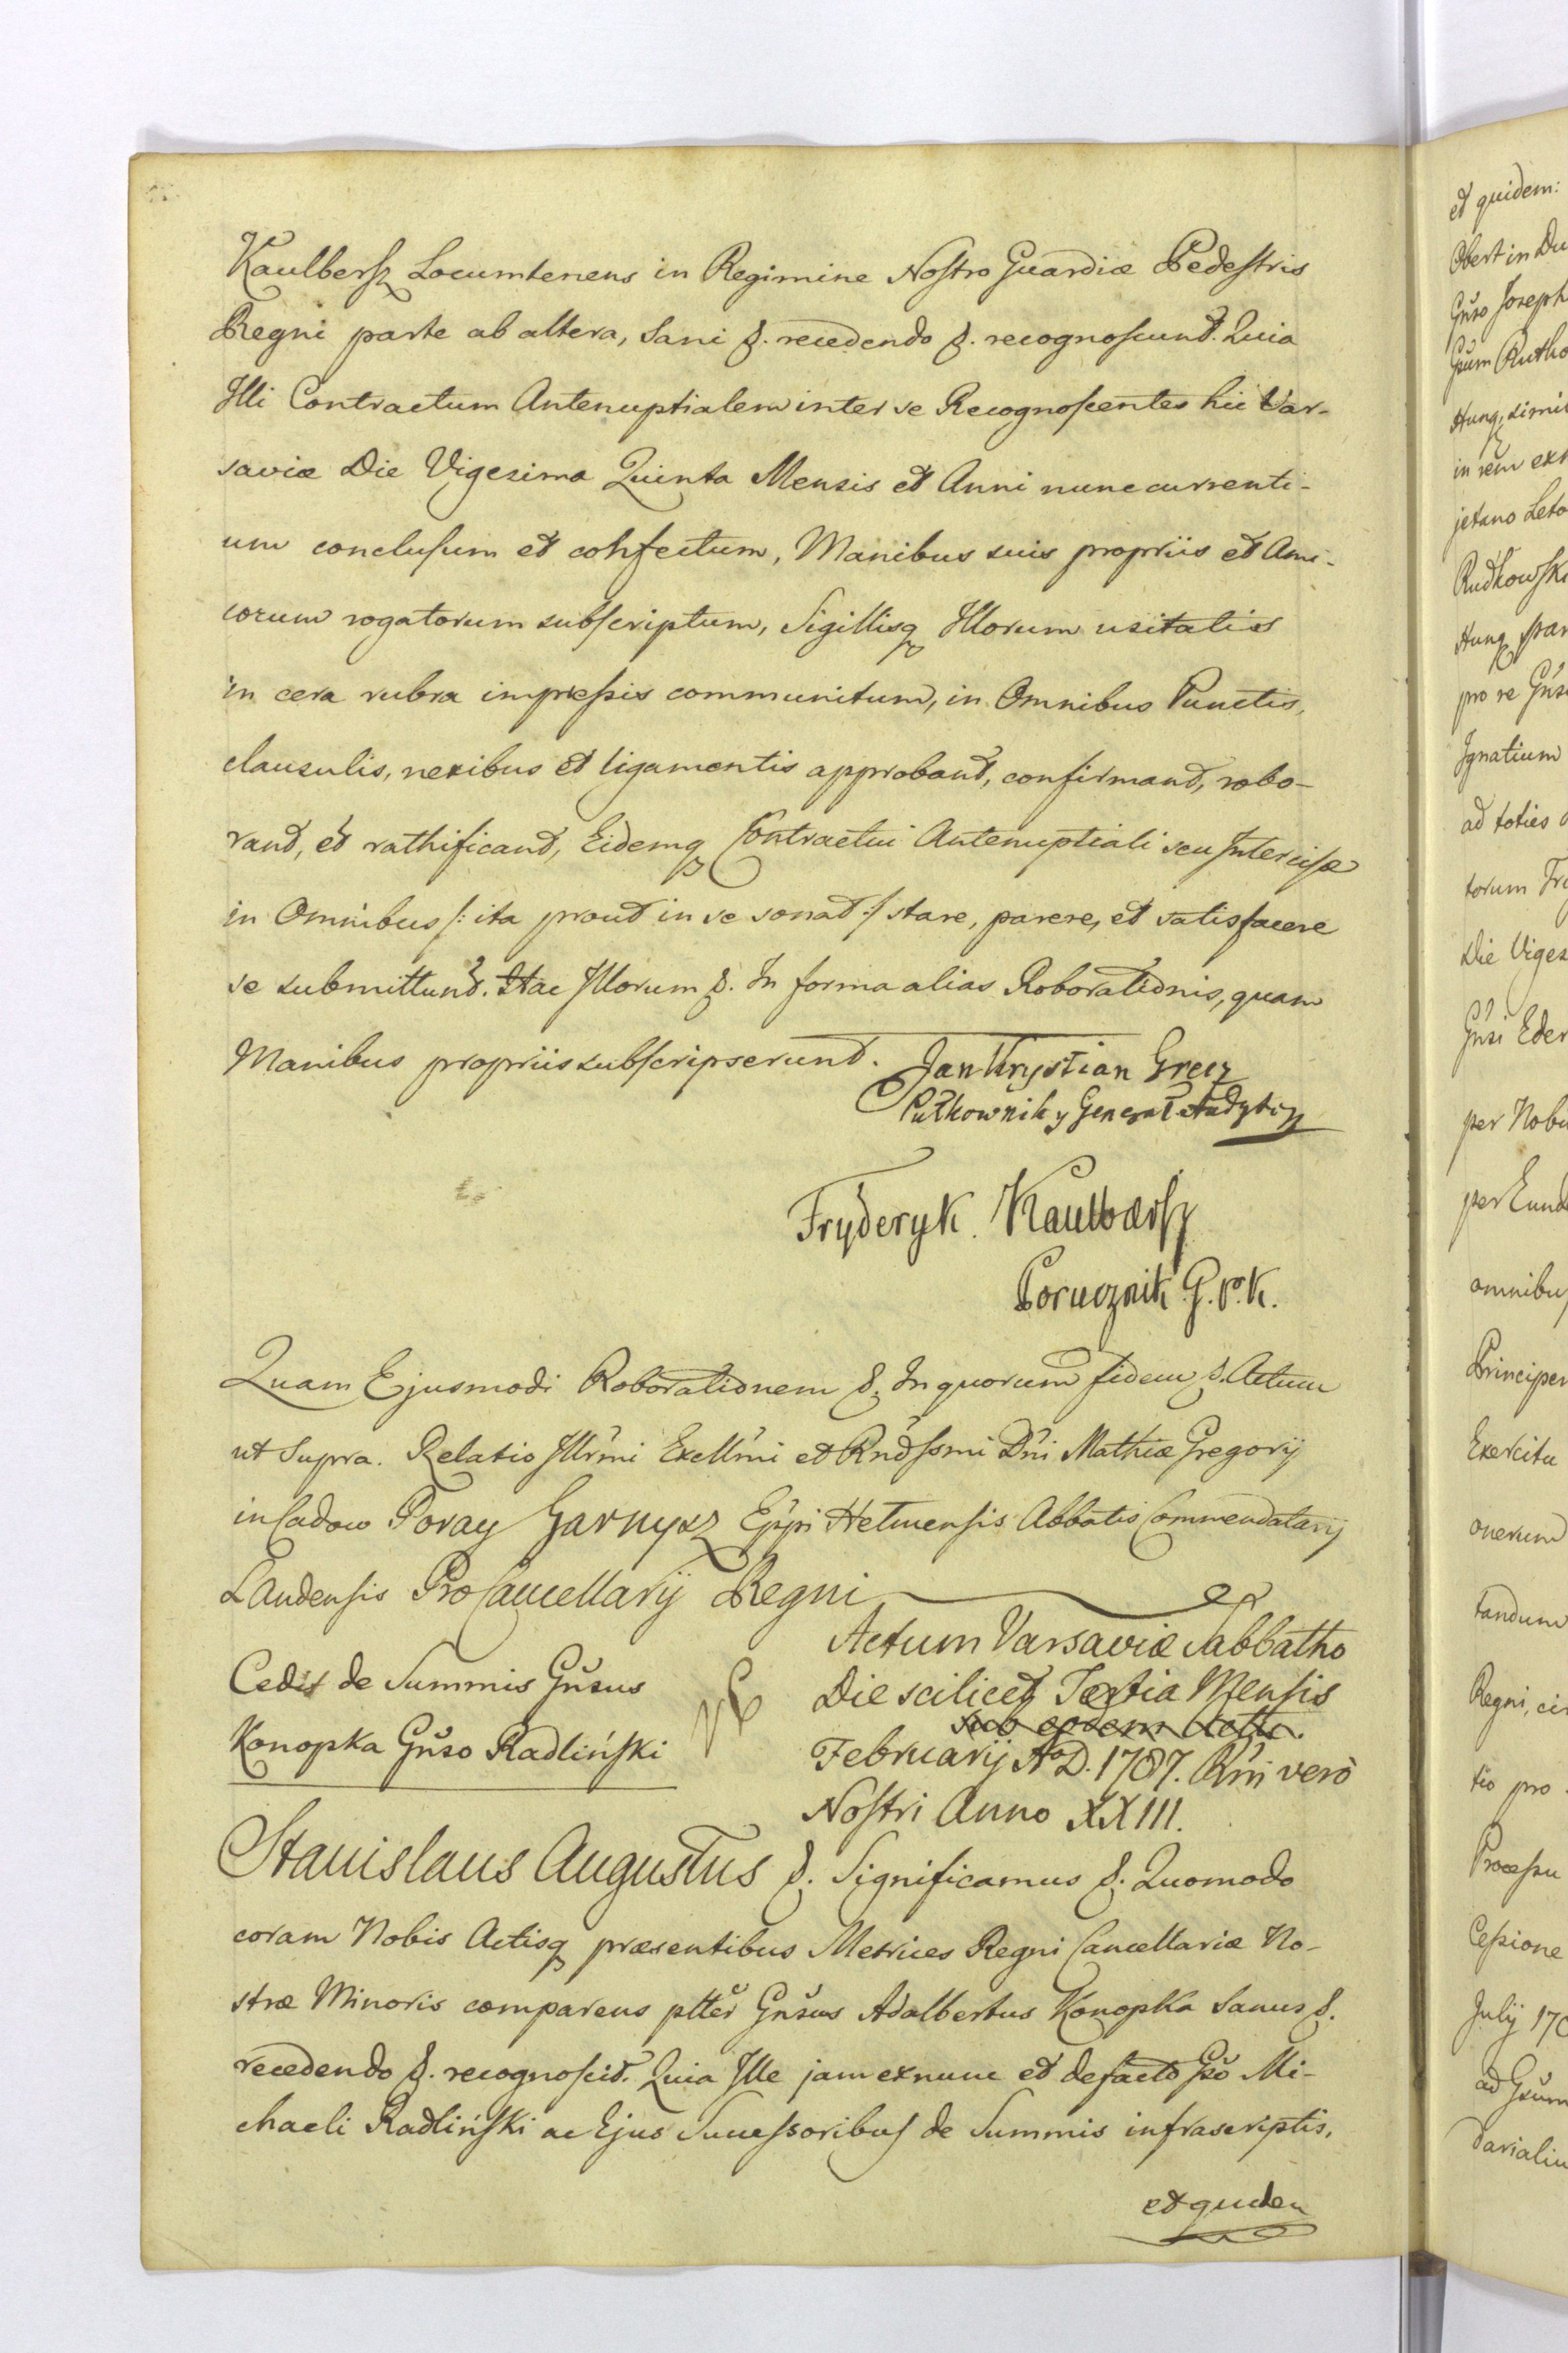 Kaulbersz Locumtenens in Regimine Nostro Guardiæ Pedestris
Regni parte ab altera, Sani &. recedendo &. recognoscunt. Quia
Illi Contractum Antenuptialem inter se Recognoscentes hic Var-
saviæ Die Vigesima Quinta Mensis et Anni nunc currenti-
um conclusum et confectum, Manibus suis propriis et Ami-
corum rogatorum subscriptum, Sigillisq Illorum usitatis
in cera rubra impressis communitum, in Omnibus Punctis,
clausulis, nexibus et ligamentis approbant, confirmant, robo-
rant, et rathificant, Eidemq Contractui Antenuptiali seu Intercisæ
in Omnibus /: ita prout in se sonat :/ stare, parere, et satisfacere
se submittunt. Hac Illorum &. In forma alias Roborationis, quam
Manibus propriis subscripserunt. Jan Krystian Grecz
Pułkownik y Generał Audytor
Fryderyk. Kaulbersz
Porucznik G. P. K.
Quam Ejusmodi Roborationem &. In quorum fidem &. Actum
ut Supra. Relatio Illrmi Excllmi et Rndssmi Dni Mathiæ Gregorij
in Cadow Poray Garnysz Eppi Helmensis Abbatis Commendatarij
Landensis Pro Cancellarij Regni
Cedit de Summis Gnsus
Konopka Gnso Radliński
Actum Varsaviæ Sabbatho
Die scilicet Tertia Mensis
Februarij Ao D. 1787. Rni vero
Nostri Anno XXIII.
Stanislaus Augustus &. Significamus &. Quomodo
coram Nobis Actisq præsentibus Metrices Regni Cancellariæ No-
stræ Minoris comparens ptter Gnsus Adalbertus Konopka Sanus &.
recedendo &. recognoscit. Quia Ille jam ex nunc et de facto Gso Mi-
chaeli Radliński ac Ejus Successoribus de Summis infrascriptis,
et quidem
et quidem:
Obert in
Gnso Joseph
Gsum
in rem
jetano
Rudkowski
pro re
Ignatium
ad toties
torum
Die Viges
Gnsi
per
per
omnibus
Principem
Exercitu
onerum
tandum
Regni,
tio pro
Processu
Cessione
July
ad Gsum